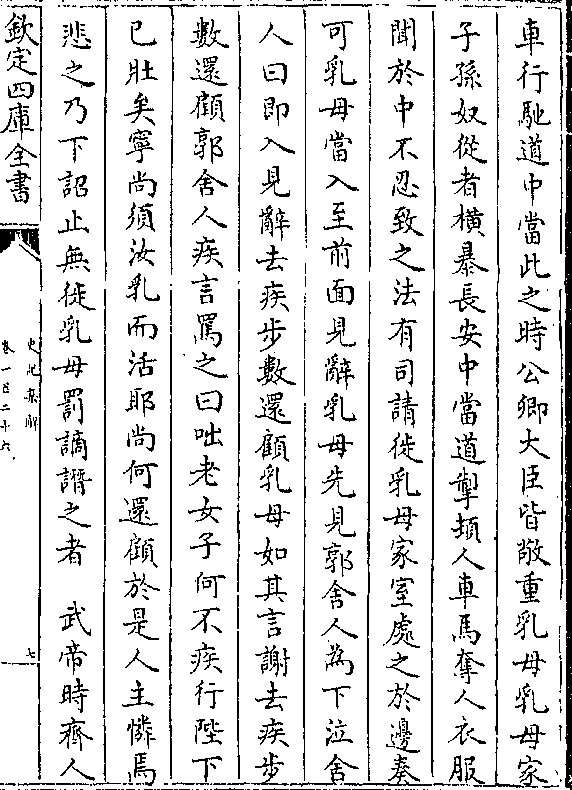 車行馳道中當此之時公卿大臣皆敬重乳母乳母家
子孫奴從者橫暴長安中當道掣頓人車馬奪人衣服
聞於中不忍致之法有司請徙乳母家室處之於邊奏
可乳母當入至前面見辭乳母先見郭舍人為下泣舍
人曰即入見辭去疾步數還顧乳母如其言謝去疾步
數還顧郭舍人疾言罵之曰咄老女子何不疾行陛下
已壯矣寧尚須汝乳而活耶尚何還顧於是人主憐焉
悲之乃下詔止無徙乳母罰謫譖之者　武帝時齊人
欽定四庫全書
史記集解
卷一百二十六
七